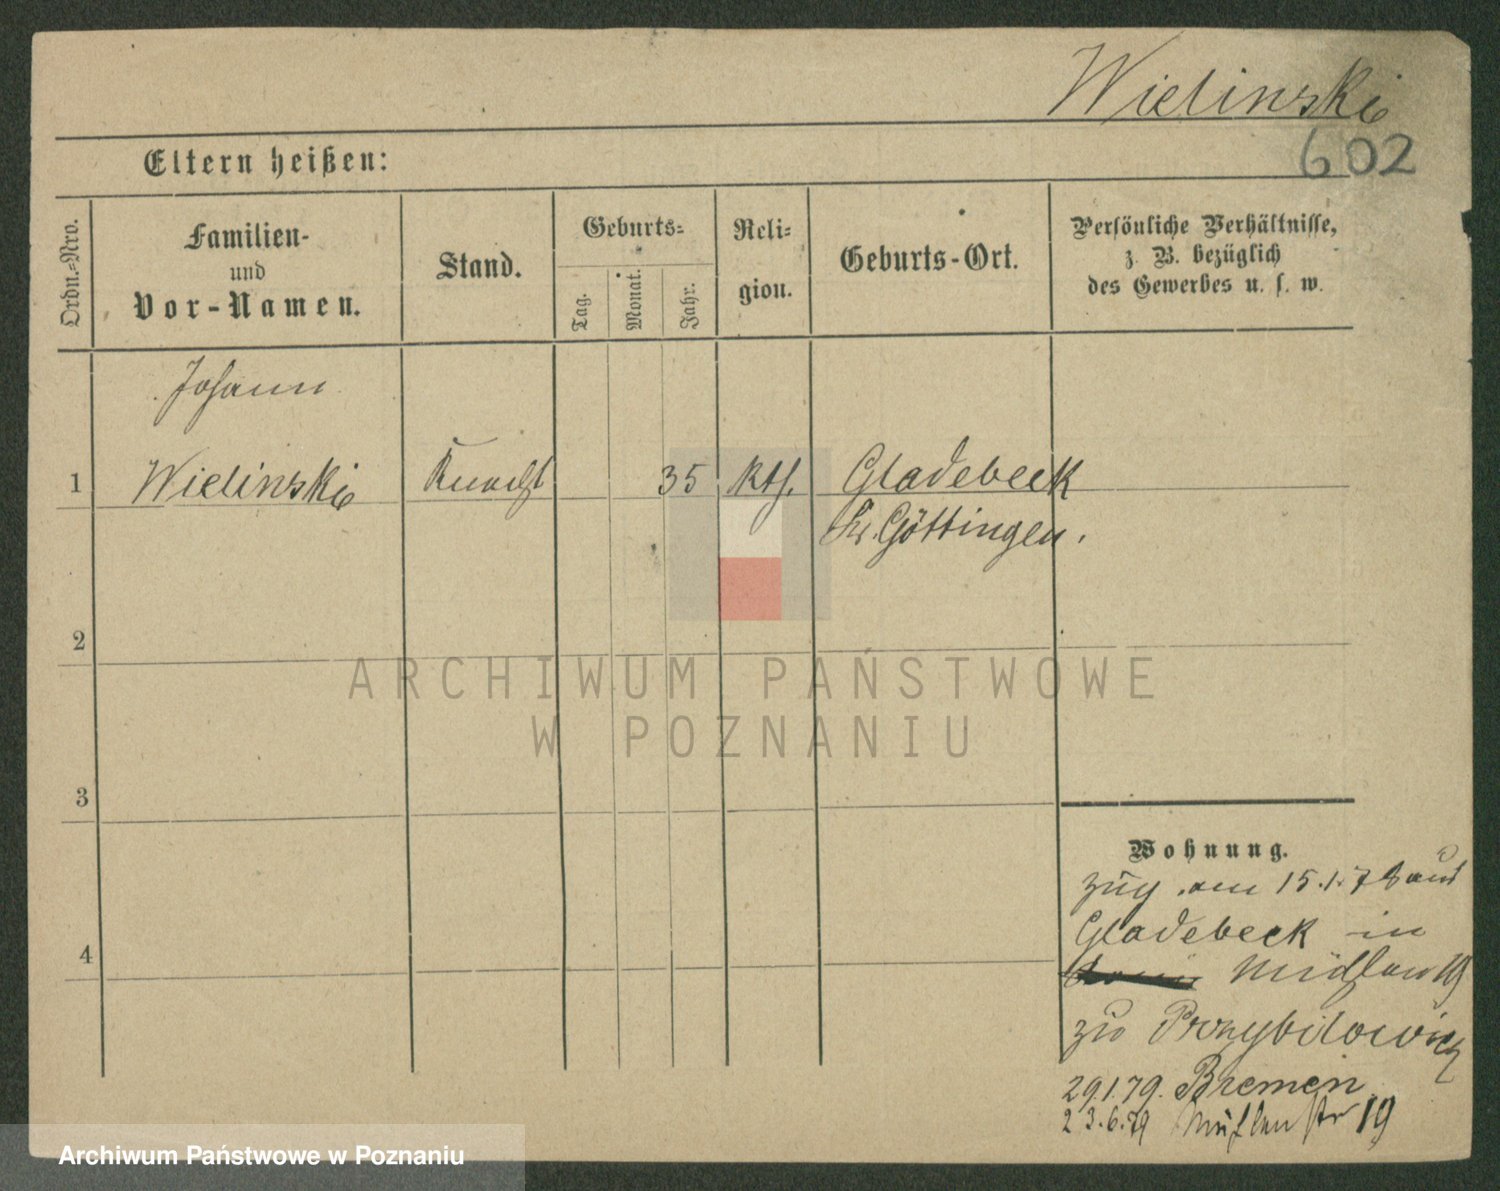 Wielinski
602
Eltern heißen:
Ordn.=Nro.
Familien-
und
Vor-Namen.
Stand.
Geburts=
Tag.
Monat.
Jahr.
Reli=
gion.
Geburts-Ort.
Persönliche Verhältnisse,
z. B. bezüglich
des Gewerbes u. s. w.
Johann
1 Wielinski Knecht 35 kth. Gladebeck
Kr. Göttingen.
2
3
4
Wohnung.
zug. am 15.1.78 aus
Gladebeck in
Mühlen 19
zu Przybilowicz
29.1.79. Bremen
23.6.79 Mühlenstr 19
ARCHIWUM PAŃSTWOWE
W POZNANIU
Archiwum Państwowe w Poznaniu